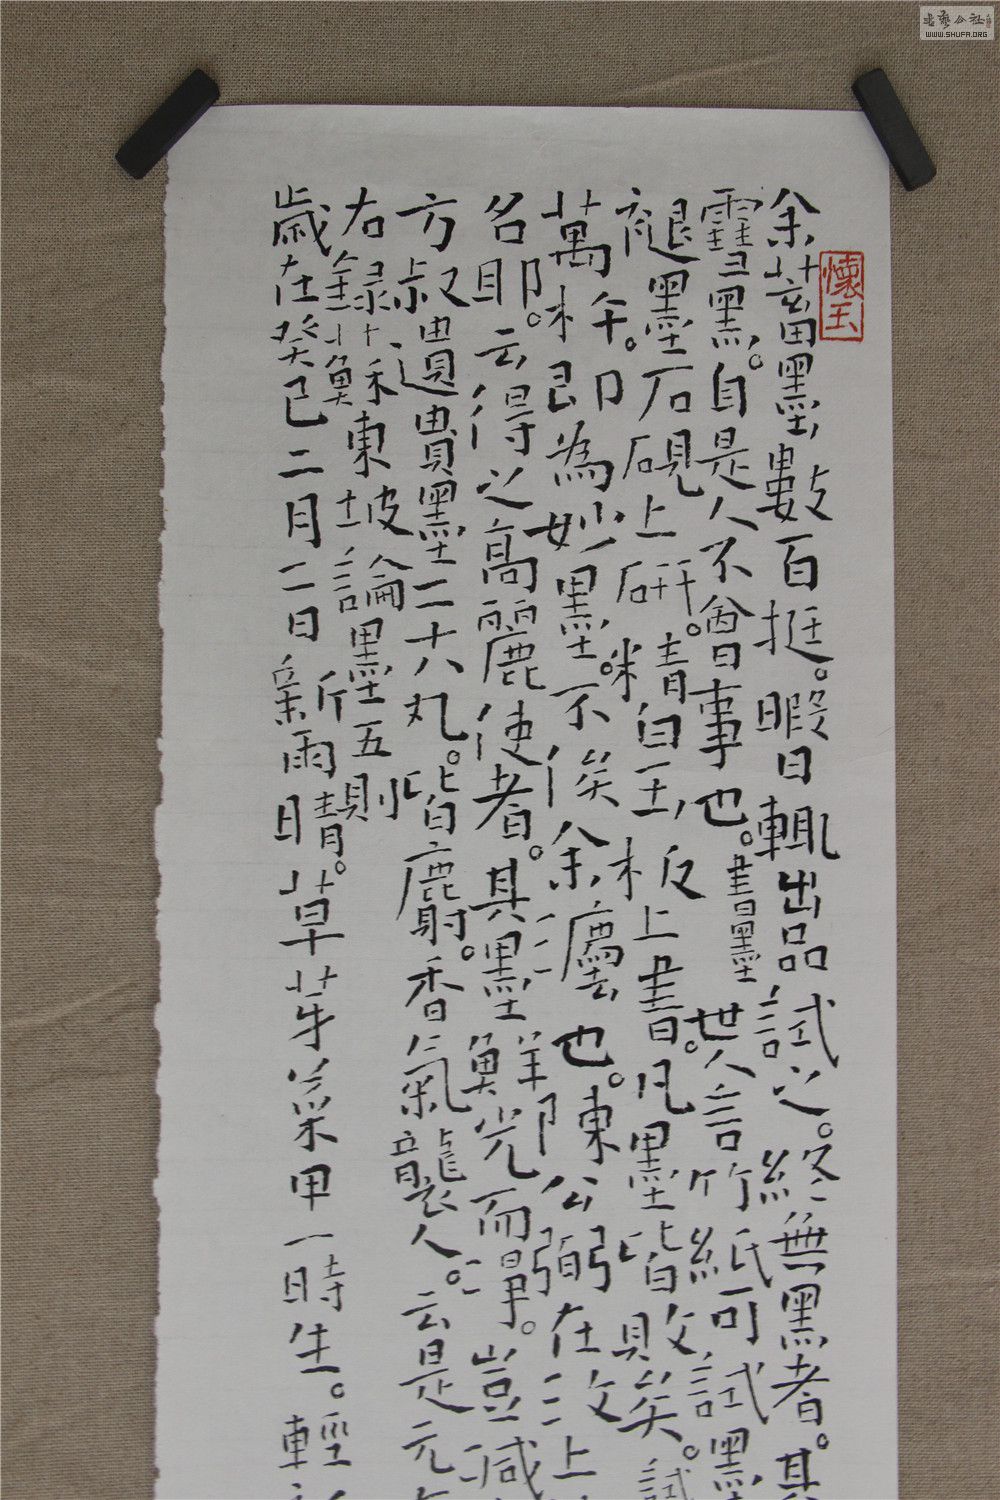 懷玉
余蓄墨數百挺。暇日輒出品試之。終無黑者。其
雪黑。自是人不會事也。書墨 世人言竹紙可試墨
褪墨石硯上研。精白玉板上書。凡墨皆敗矣。試
萬杵。即為妙墨。不俟余也。陳公弼在汶上
名耶。云得之高麗使者。其墨鮮光而淨。豈減
方叔遺貴墨二十八丸。皆麝香氣襲人。云是元
右錄蘇東坡論墨五則
歲在癸巳二月二日新雨晴。草芽菜甲一時生。輕
書藝公社
WWW.SHUFA.ORG